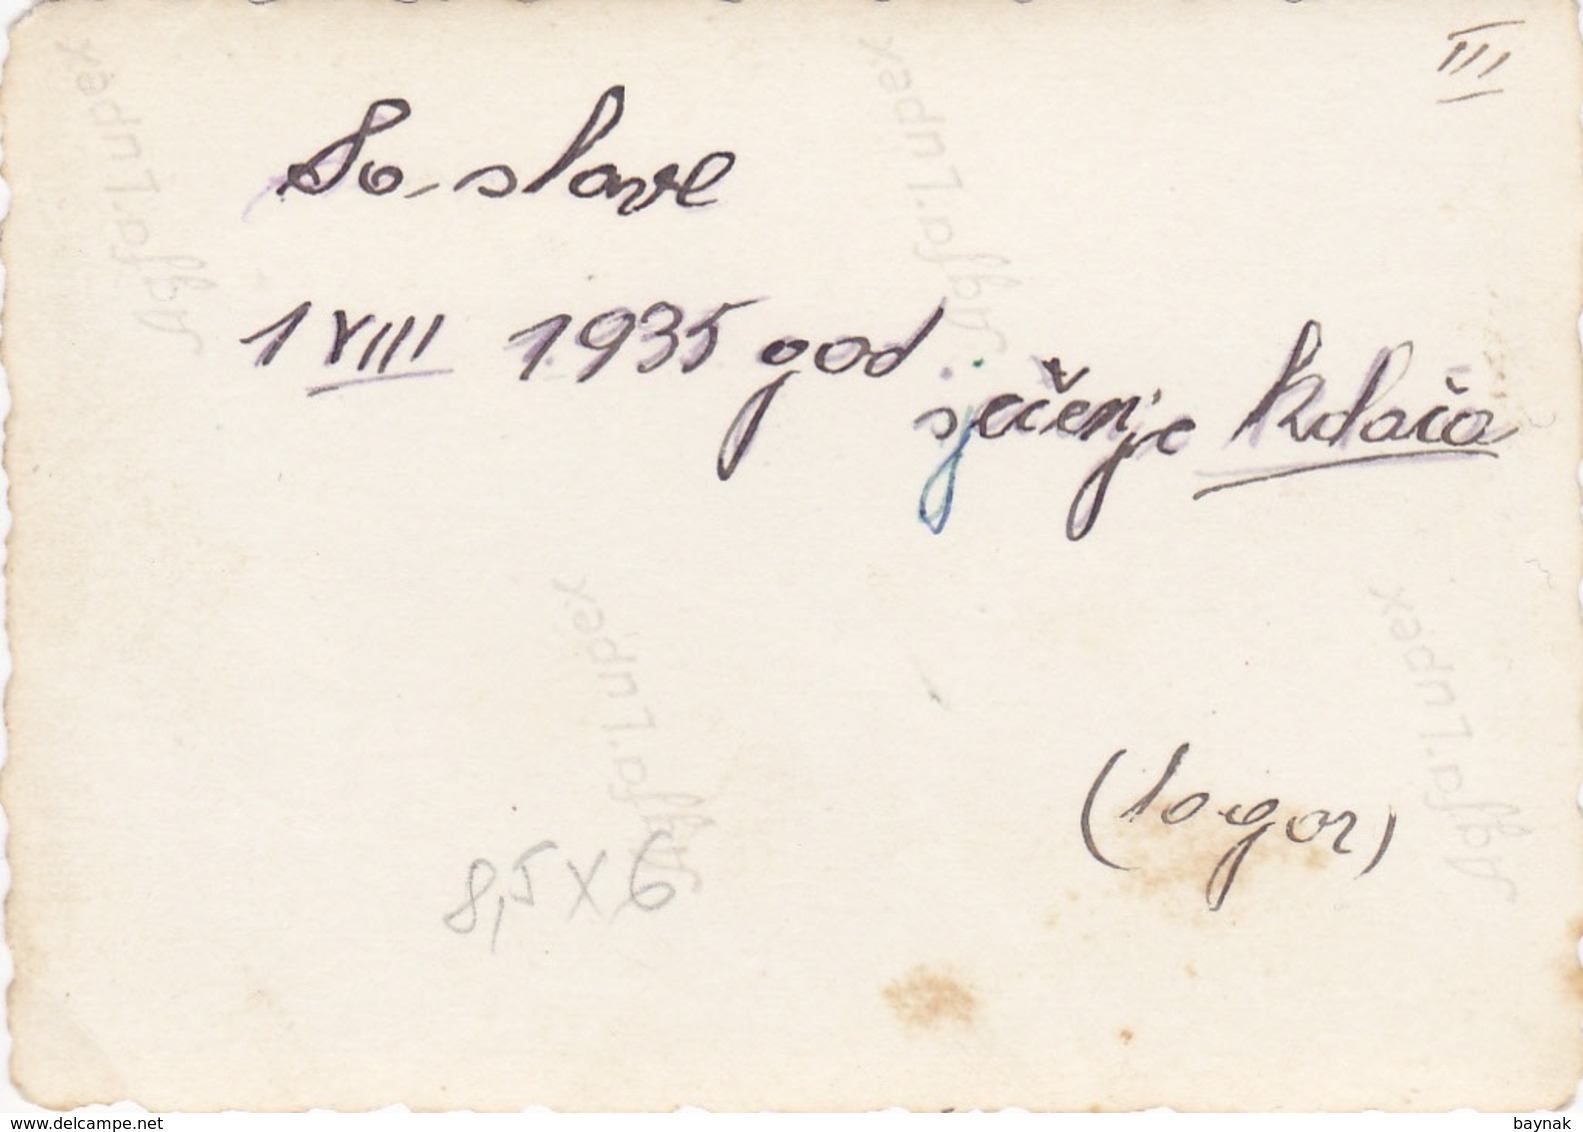 III
So slave
1 VIII 1935 god
sječenje kolača
(logor)
8,5 x 6
Agfa Lupex
Agfa Lupex
Agfa Lupex
Agfa Lupex
www.delcampe.net
baynak